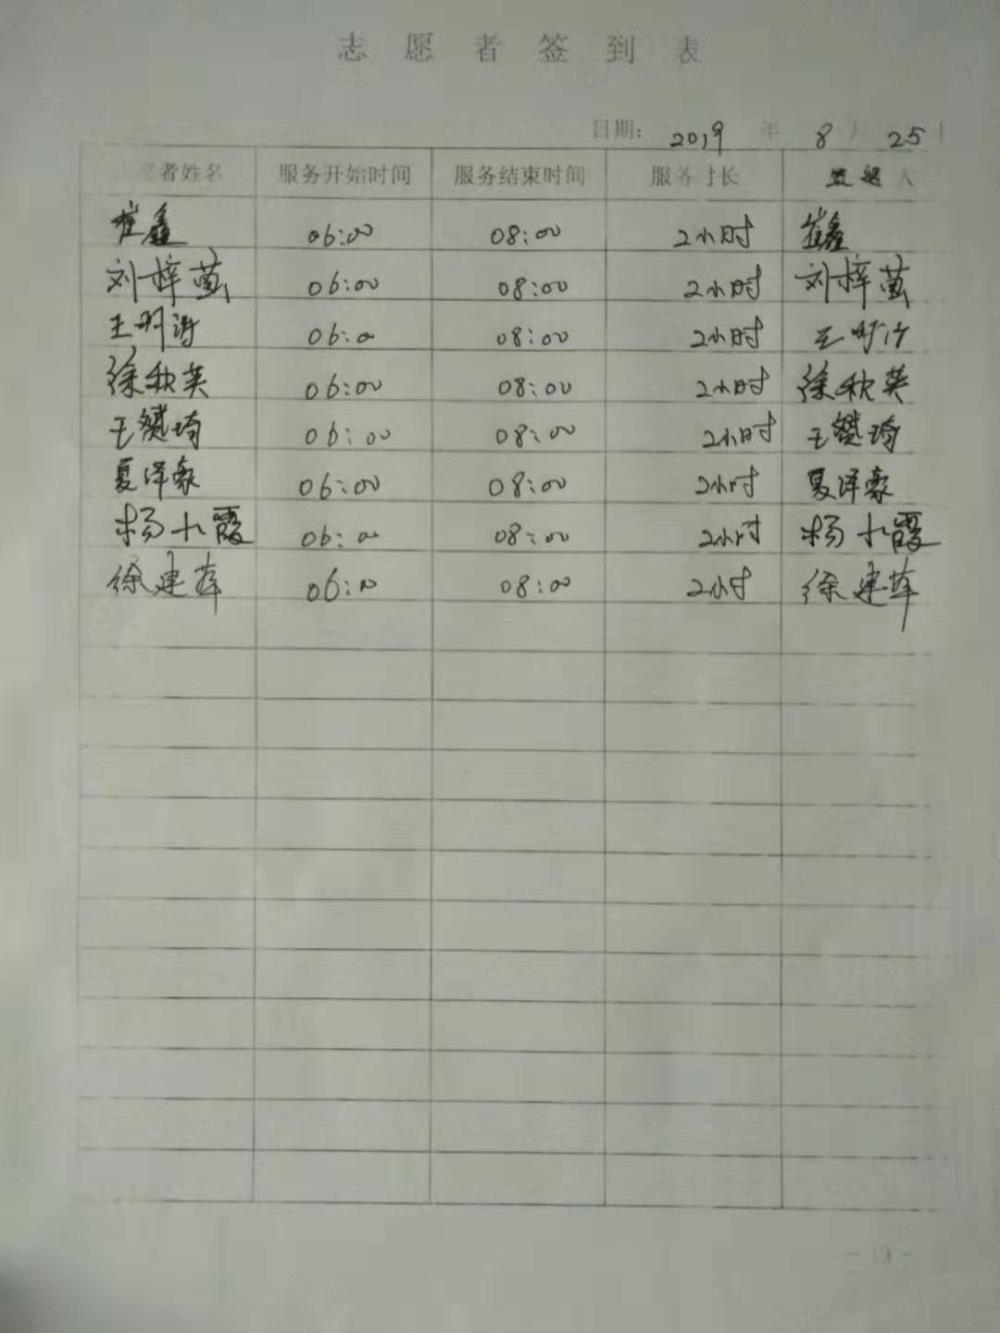 志愿者签到表
日期: 2019 年 8 月 25
者姓名 服务开始时间 服务结束时间 服务时长 人
崔鑫 06:00 08:00 2小时 崔鑫
刘梓萤 06:00 08:00 2小时 刘梓萤
王明涛 06:00 08:00 2小时 王明
徐秋英 06:00 08:00 2小时 徐秋英
王 琦 06:00 08:00 2小时 王 琦
夏泽豪 06:00 08:00 2小时 夏泽豪
杨九霞 06:00 08:00 2小时 杨九霞
徐建萍 06:00 08:00 2小时 徐建萍